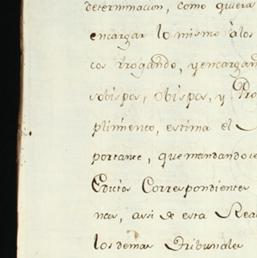 determinacion, como quiera
encargar lo mismo àlos
cos rrogando, y encargan
sobispos, Obispos, y Pro
plimiento, estima el
portante, que mandando
Edictos Correspondientes
nar, asi de esta Rea
los demas Tribunales